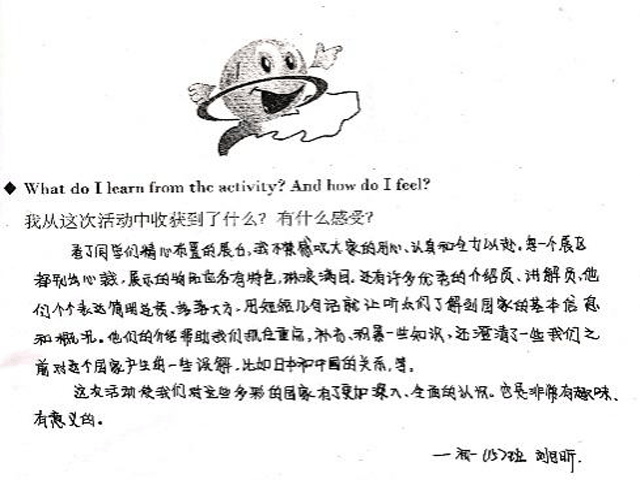 ◆ What do I learn from the activity? And how do I feel?
我从这次活动中收获到了什么？有什么感受？
看了同学们精心布置的展台，我不禁感叹大家的用心、认真和全力以赴。每一个展区
都别出心裁，展示的物品也各有特色，琳琅满目。还有许多优秀的介绍员、讲解员，他
们个个表达简明连贯、落落大方，用短短几句话就让听众们了解到国家的基本信息
和概况。他们的介绍帮助我们抓住重点，补充、积累一些知识，还澄清了一些我们之
前对这个国家产生的一些误解，比如日本和中国的关系，等。
这次活动使我们对这些多彩的国家有了更加深入、全面的认识。也是非常有趣味、
有意义的。
(15)班 刘